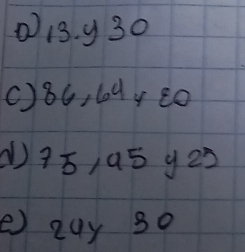 a) 13. y 30
c) 86, 64 y 80
d) 75, 45 y 25
e) 24 y 30